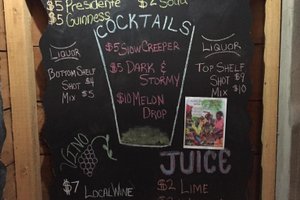 $5 Presidente
$5 Guinness
$2 Soda
COCKTAILS
$5 Slow Creeper
$5 Dark &
Stormy
$10 Melon
Drop
Liquor
Bottom Shelf
Shot $4
Mix $5
Liquor
Top Shelf
Shot $9
Mix $10
Vino
$7 Local Wine
JUICE
$2 Lime